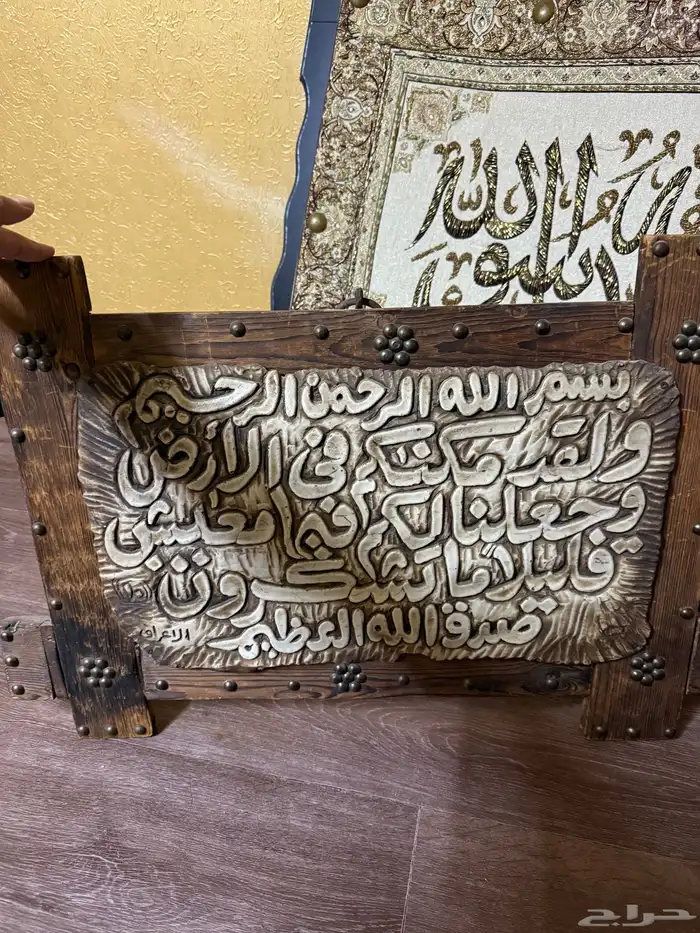 الله
رسول الله
بسم الله الرحمن الرحيم
ولقد مكنكم في الأرض
وجعلنا لكم فيها معيش
قليلا ما تشكرون
صدق الله العظيم
الاعراف
حراج